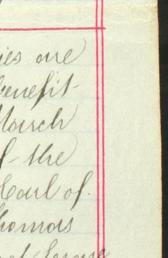 ies are
benefit
March
f the
Earl of
homas